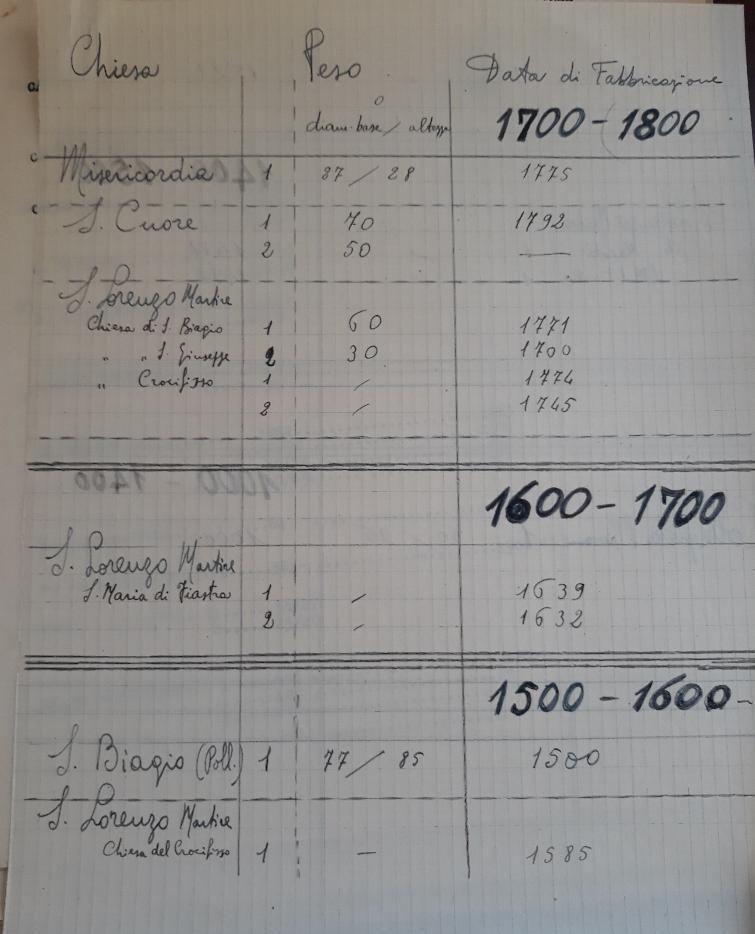 Chiesa Peso Data di Fabbricazione
o
diam. base / altezza 1700 - 1800
Misericordia 1 37 / 28 1775
S. Cuore 1 70 1792
2 50 —
S. Lorenzo Martire
Chiesa di S. Biagio 1 60 1771
" " S. Giuseppe 2 30 1700
" Crocifisso 1 / 1774
2 / 1745
1600 - 1700
S. Lorenzo Martire
S. Maria di Fiastra 1 / 1639
2 / 1632
1500 - 1600 -
S. Biagio (Poll.) 1 77 / 85 1500
S. Lorenzo Martire
Chiesa del Crocifisso 1 — 1585